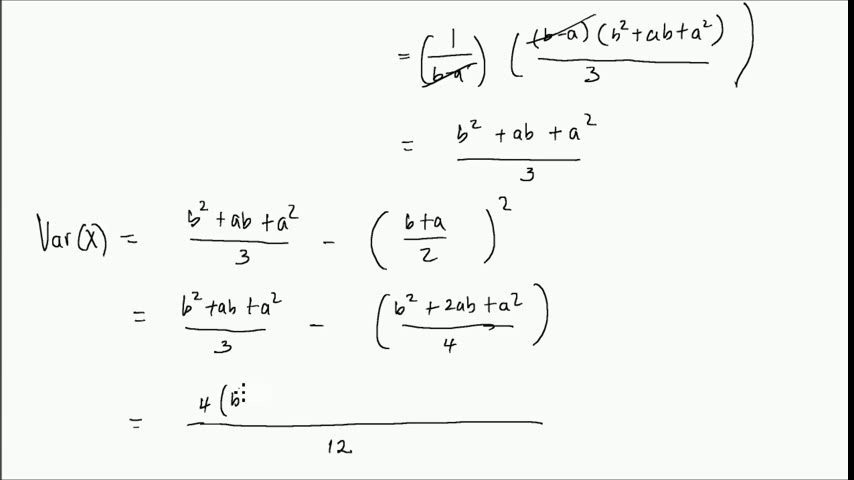 = (1/(b-a)) ((b-a)(b²+ab+a²)/3)
= (b² + ab + a²)/3
Var(X) = (b² + ab + a²)/3 - ((b+a)/2)²
= (b² + ab + a²)/3 - ((b² + 2ab + a²)/4)
= 4(b /12